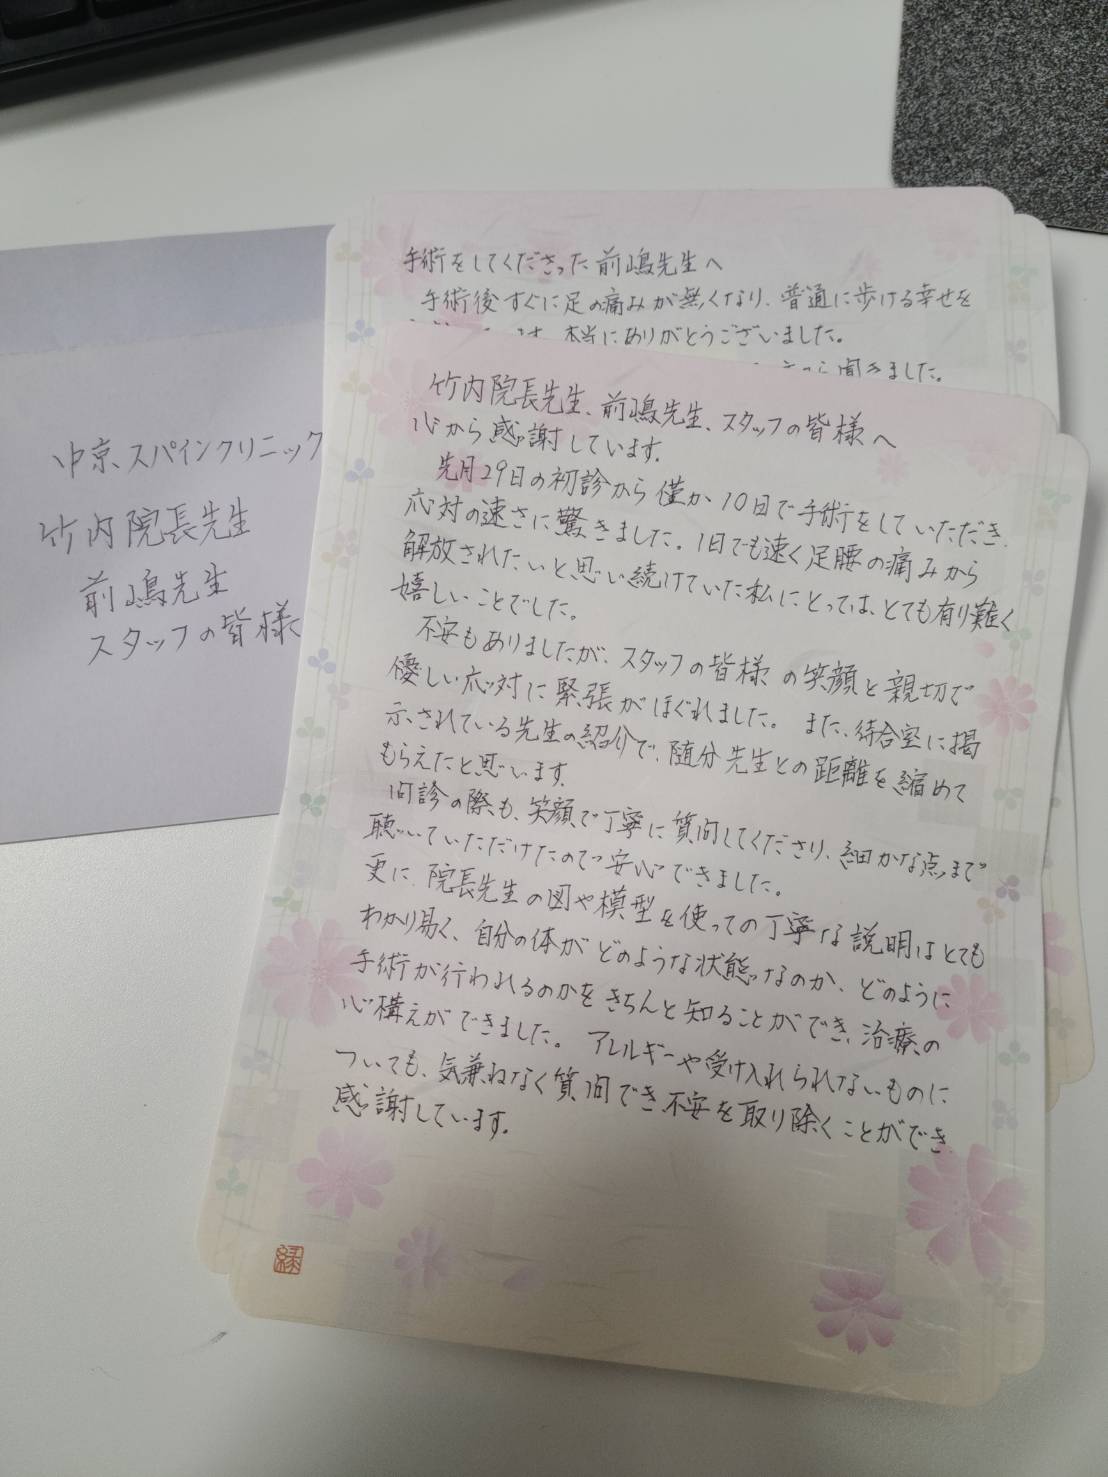 中京スパインクリニック
竹内院長先生
前嶋先生
スタッフの皆様
手術をしてくださった前嶋先生へ
手術後すぐに足の痛みが無くなり、普通に歩ける幸せを
ます。本当にありがとうございました。
から聞きました。
竹内院長先生、前嶋先生、スタッフの皆様へ
心から感謝しています。
先月29日の初診から僅か10日で手術をしていただき、
応対の速さに驚きました。1日でも速く足腰の痛みから
解放されたいと思い続けていた私にとっては、とても有り難く
嬉しいことでした。
不安もありましたが、スタッフの皆様の笑顔と親切で
優しい応対に緊張がほぐれました。また、待合室に掲
示されている先生の紹介で、随分先生との距離を縮めて
もらえたと思います。
問診の際も、笑顔で丁寧に質問してくださり、細かな点まで
聴いていただけたので安心できました。
更に、院長先生の図や模型を使っての丁寧な説明はとても
わかり易く、自分の体がどのような状態なのか、どのように
手術が行われるのかをきちんと知ることができ、治療の
心構えができました。アレルギーや受け入れられないものに
ついても、気兼ねなく質問でき不安を取り除くことができ
感謝しています。
縁